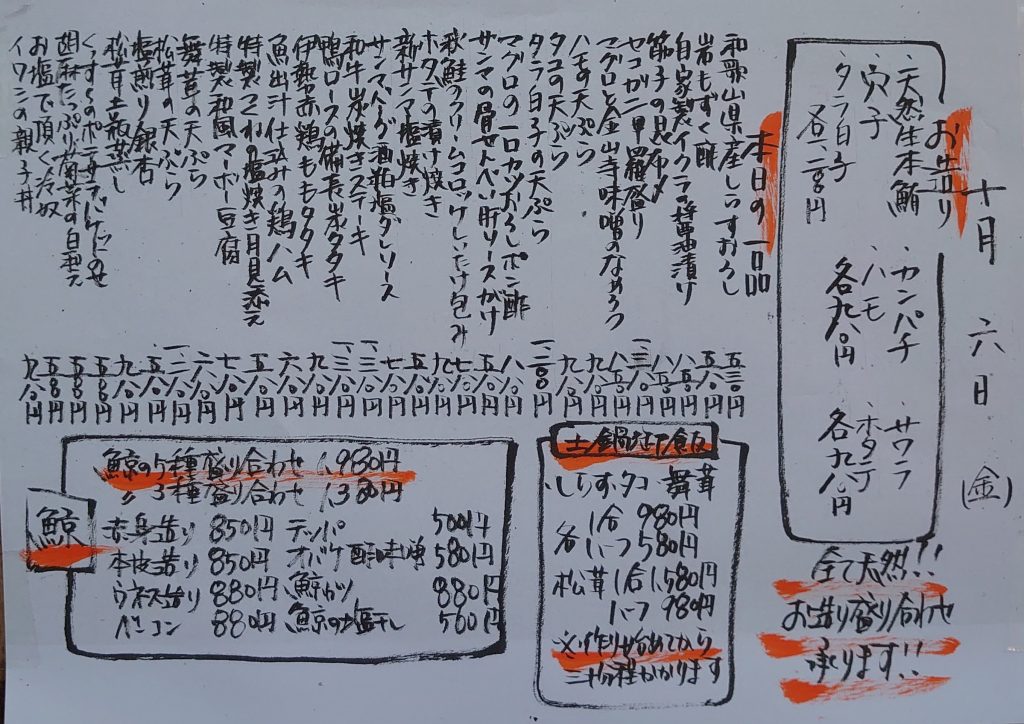 十月六日(金)
お造り
・天然生本鮪
・穴子
・タラ白子
各一二〇〇円
・カンパチ
・ハモ
各九八〇円
・サワラ
・ホタテ
各九八〇円
全て天然!!
お造り盛り合わせ
承ります!!
本日の一品
和歌山県産しらすおろし 五三〇円
岩もずく酢 五八〇円
自家製イクラの醤油漬け 八五〇円
筋子の昆布〆 八五〇円
セコガニ甲羅盛り 一三八〇円
マグロと金山寺味噌のなめろう 八五〇円
ハモの天ぷら 九八〇円
タコの天ぷら 九八〇円
タラ白子の天ぷら 一二〇〇円
マグロの一口カツおろしポン酢 八八〇円
サンマの骨せんべい肝ソースがけ 五八〇円
秋鮭クリームコロッケしいたけ包み 七八〇円
ホタテの漬け焼き 九八〇円
新サンマ塩焼き
サンマハーブ酒粕塩ダレソース
和牛炭焼きステーキ
鴨ロースの備長炭タタキ
伊勢赤鶏ももタタキ
魚出汁仕込みの鶏ハム
特製つくねの塩焼き月見添え
特製和風マーボー豆腐
舞茸の天ぷら
松茸の天ぷら
塩煎り銀杏
松茸土瓶蒸し
胡麻たっぷり菊菜の白和え
お塩で頂く冷奴
イワシの親子丼 九八〇円
土鍋ご飯
・しらす・タコ・舞茸
各 1合 980円
ハーフ 580円
松茸 1合 1,580円
ハーフ 980円
※作り始めてから
三十分程かかります
鯨
鯨の5種盛り合わせ 1,980円
〃 3種盛り合わせ 1,380円
赤身造り 850円
本皮造り 850円
ウネス造り 880円
ベーコン 880円
テッパ 500円
オバケ酢味噌 580円
鯨カツ 880円
鯨の塩干し 500円